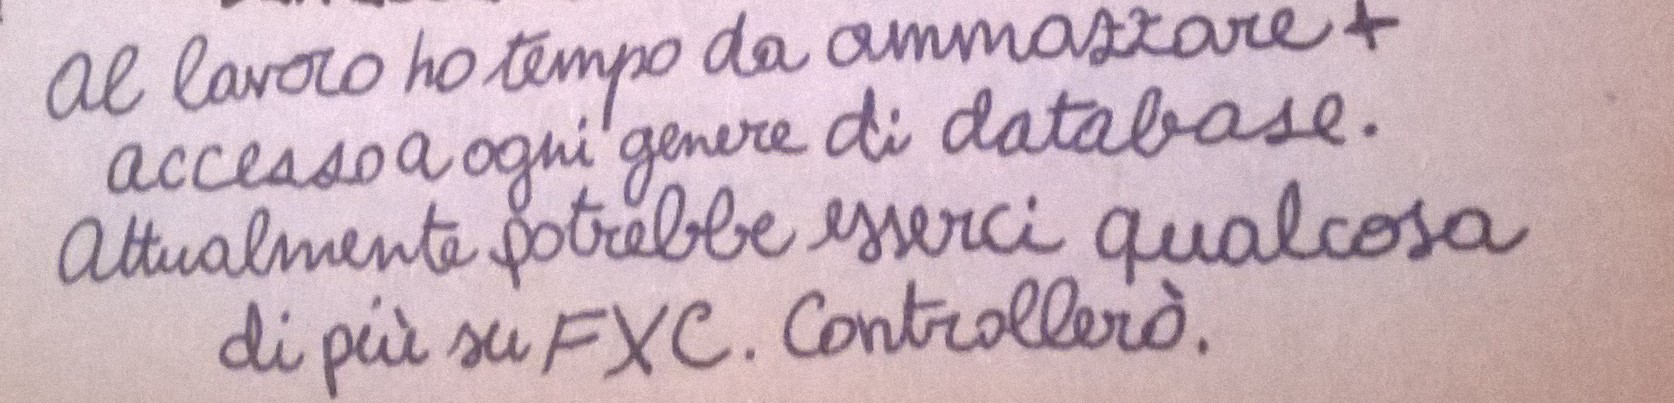 Al lavoro ho tempo da ammazzare +
accesso a ogni genere di database.
Attualmente potrebbe esserci qualcosa
di più su FXC. Controllerò.